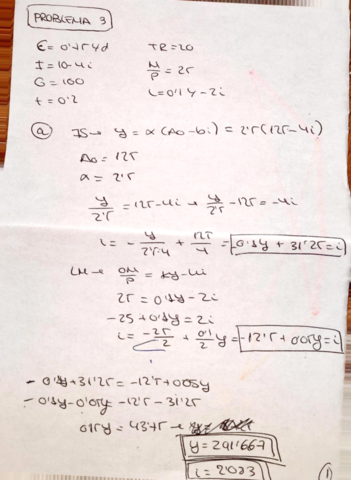 PROBLEMA 3
C = 0'75 Yd TR = 20
I = 10 - 4i M/P = 25
G = 100 L = 0'1Y - 2i
t = 0'2
a) IS → Y = α(A0 - bi) = 2'5(125 - 4i)
A0 = 125
α = 2'5
Y/2'5 = 125 - 4i → Y/2'5 - 125 = -4i
i = - Y/2'5·4 + 125/4 = -0'1Y + 31'25 = i
LM → M/P = kY - hi
25 = 0'1Y - 2i
-25 + 0'1Y = 2i
i = -25/2 + 0'1/2 Y = -12'5 + 0'05Y = i
- 0'1Y + 31'25 = -12'5 + 0'05Y
- 0'1Y - 0'05Y = -12'5 - 31'25
0'15Y = 43'75 →
Y = 291'667
i = 2'083
1